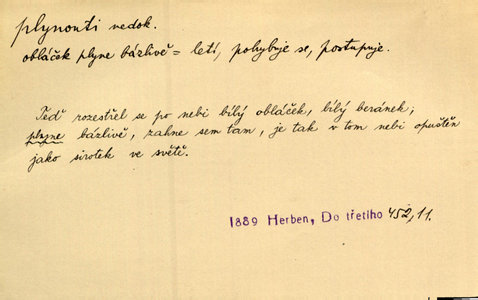 plynouti nedok.
obláček plyne bázlivě = letí, pohybuje se, postupuje.
Teď rozestřel se po nebi bílý obláček, bílý beránek;
plyne bázlivě, zahne sem tam, je tak v tom nebi opuštěn
jako sirotek ve světě.
1889 Herben, Do třetího 452, 11.